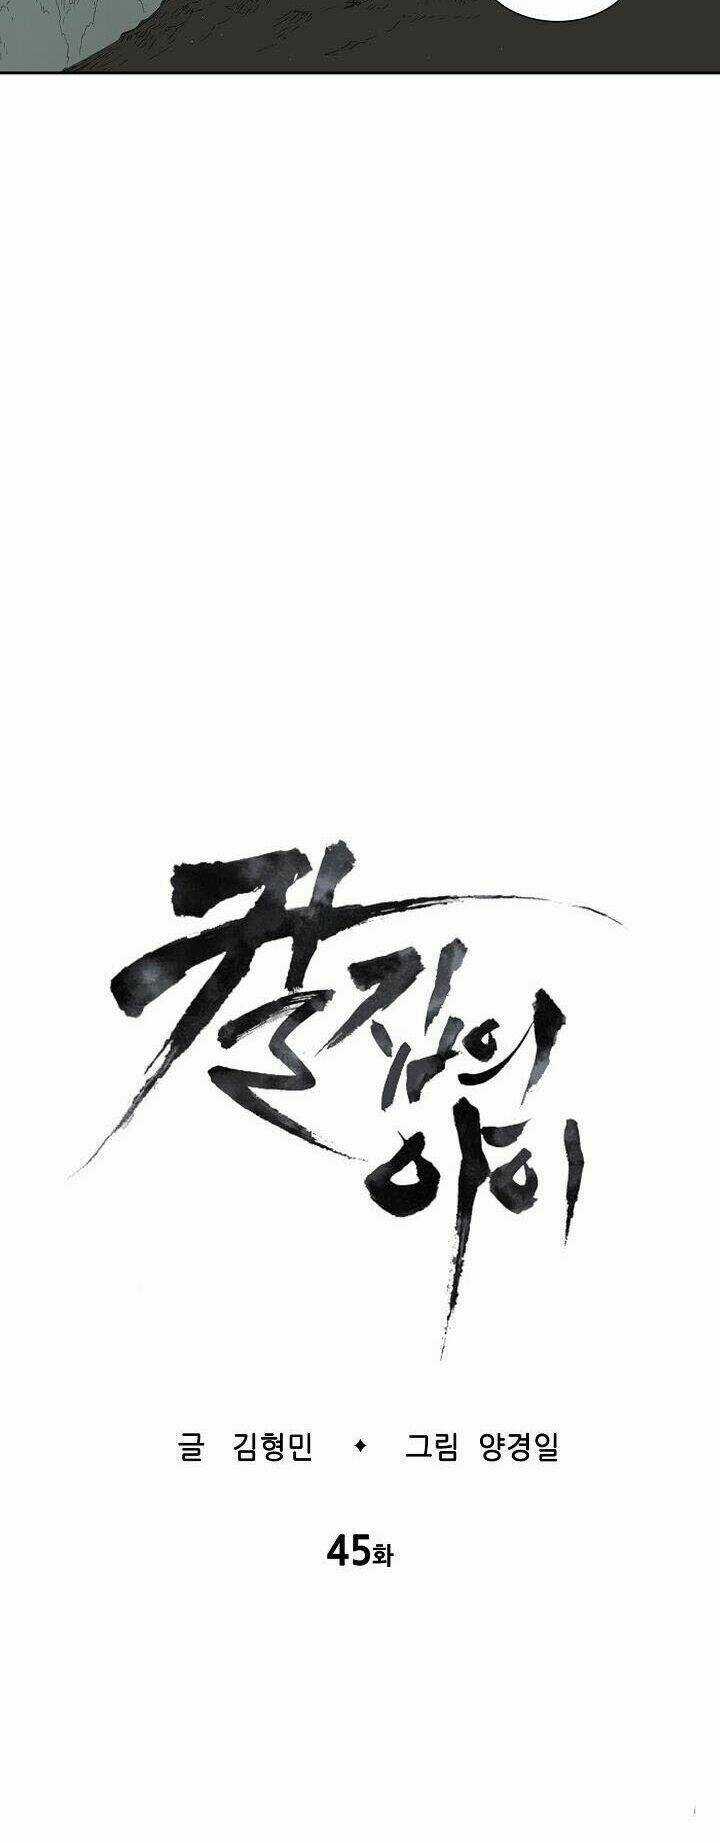 칼집의
아이
글 김형민 ✦ 그림 양경일
45화